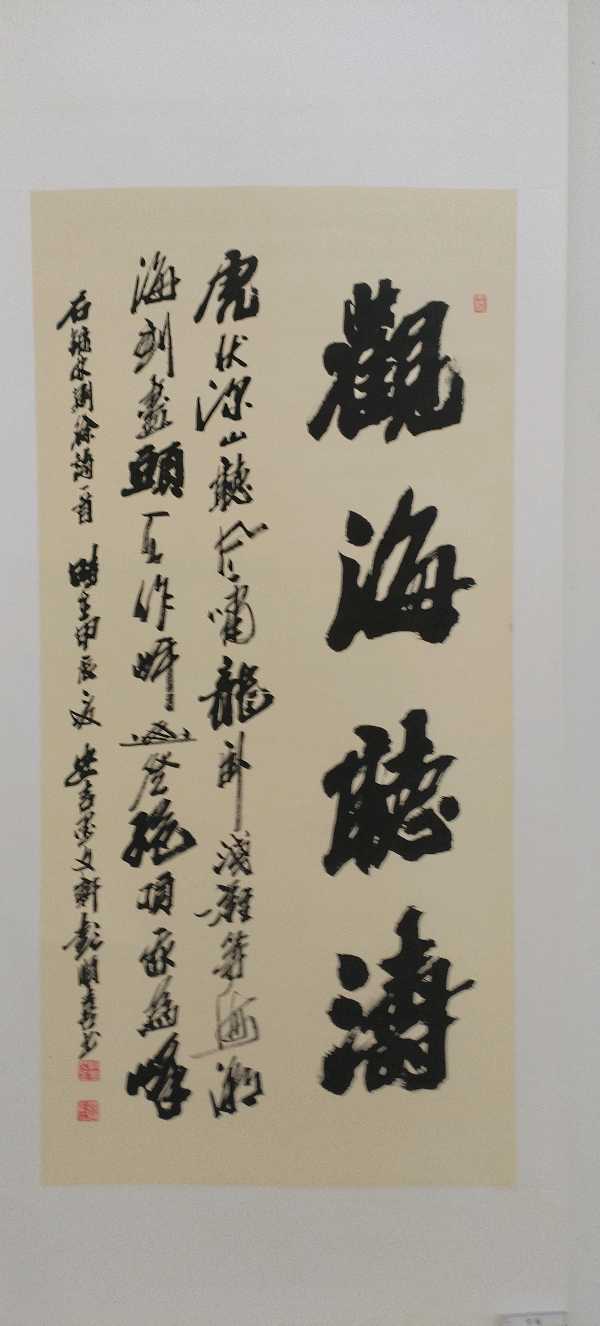 觀海聽濤
虎伏深山聽風嘯龍卧淺灘等海潮
海到盡頭天作岸山登絕頂我為峰
林則徐詩一首 時在甲辰夏 吉墨文軒彭